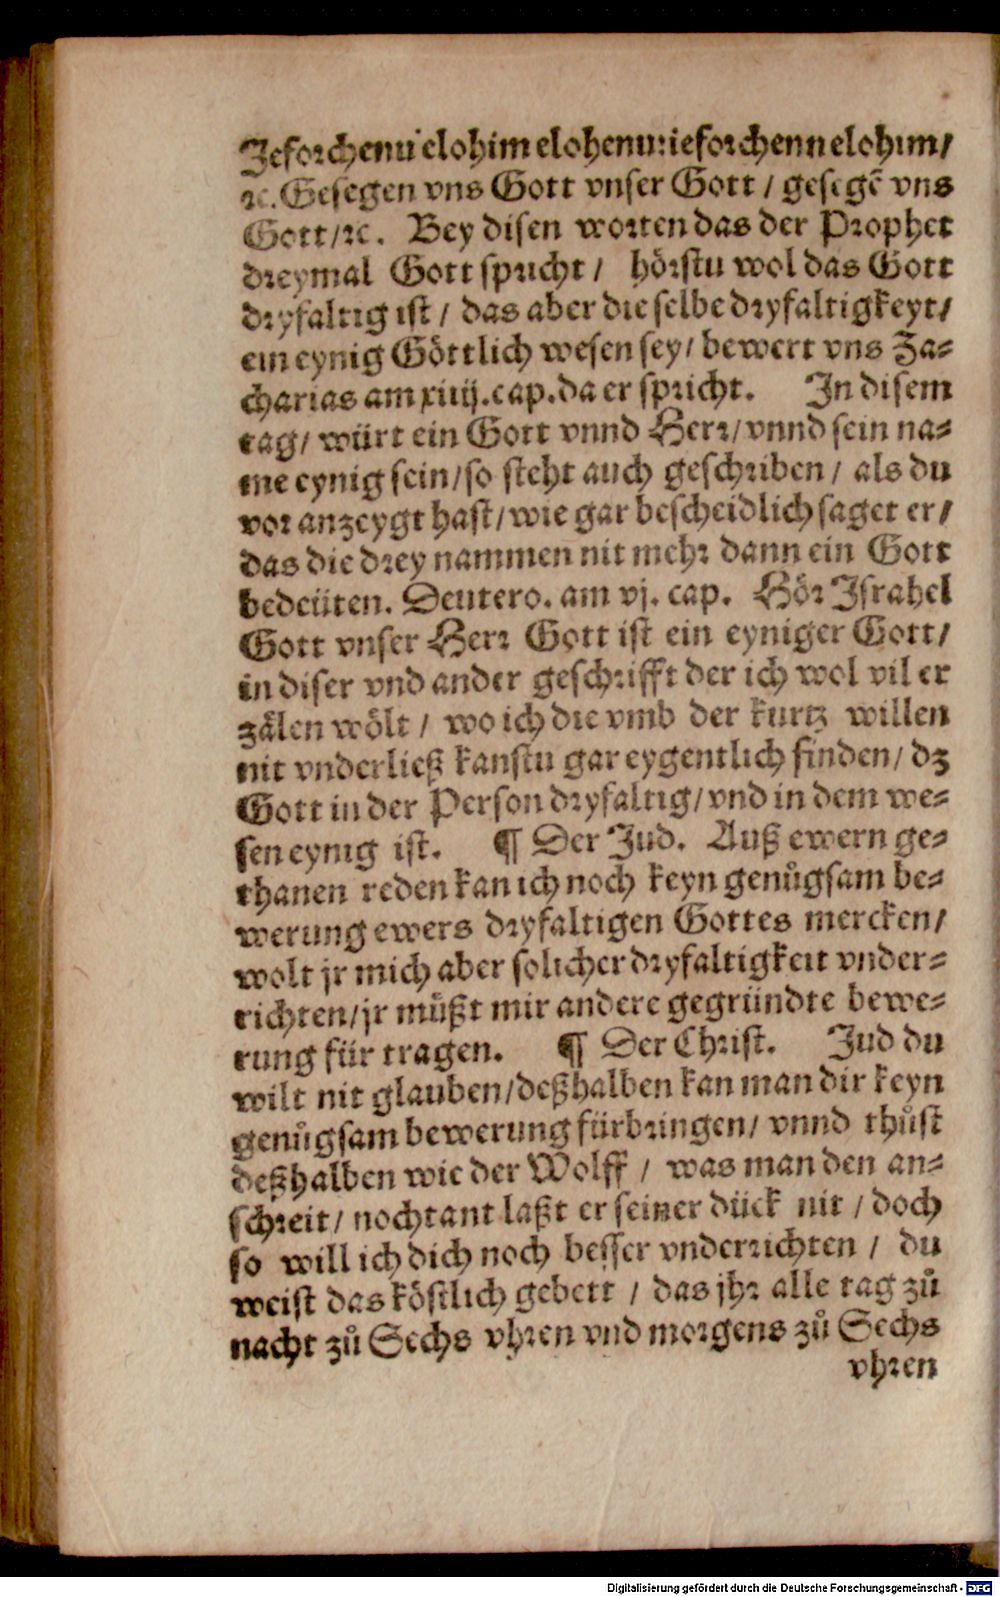 Jeforchenu elohim elohenu: ieforchenn elohim/
ꝛc. Gesegen vns Gott vnser Gott / gesegē vns
Gott/ꝛc. Bey disen worten das der Prophet
dreymal Gott spricht / hörstu wol das Gott
dryfaltig ist / das aber die selbe dryfaltigkeyt/
ein eynig Göttlich wesen sey/ bewert vns Za-
charias am xiiij. cap. da er spricht. In disem
tag/ würt ein Gott vnnd Herr/ vnnd sein na-
me eynig sein/so steht auch geschriben / als du
vor anzeygt hast/wie gar bescheidlich saget er/
das die drey nammen nit mehr dann ein Gott
bedeüten. Deutero. am vj. cap. Hör Israhel
Gott vnser Herr Gott ist ein eyniger Gott/
in diser vnd ander geschrifft der ich wol vil er
zälen wölt / wo ich die vmb der kurtz willen
nit vnderließ kanstu gar eygentlich finden/ dz
Gott in der Person dryfaltig/ vnd in dem we-
sen eynig ist. ¶ Der Jud. Auß ewern ge-
thanen reden kan ich noch keyn genůgsam be-
werung ewers dryfaltigen Gottes mercken/
wolt jr mich aber solicher dryfaltigkeit vnder-
richten/jr müßt mir andere gegründte bewe-
rung für tragen. ¶ Der Christ. Jud du
wilt nit glauben/deßhalben kan man dir keyn
genůgsam bewerung fürbringen/ vnnd thůst
deßhalben wie der Wolff / was man den an-
schreit/ nochtant laßt er seiner dück nit / doch
so will ich dich noch besser vnderrichten / du
weist das köstlich gebett / das jhr alle tag zů
nacht zů Sechs vhren vnd morgens zů Sechs
vhren
Digitalisierung gefördert durch die Deutsche Forschungsgemeinschaft - DFG